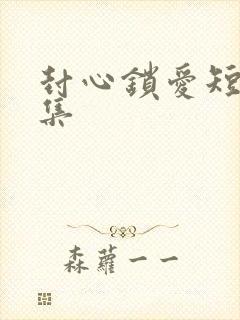 封心鎖愛短
集
森蘿一一